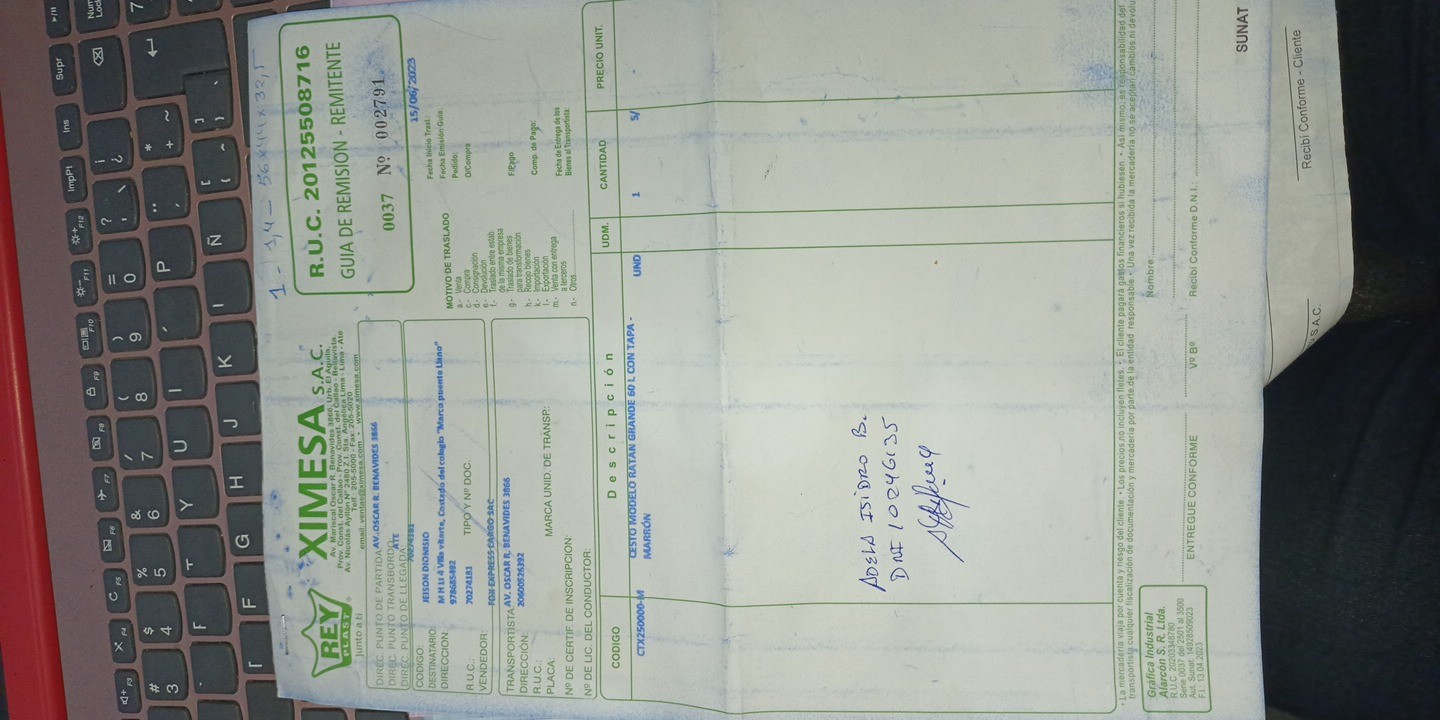 1 - 1,4 - 56x44x32,5
REY
PLAST
Junto a ti
XIMESA S.A.C.
Av. Mariscal Oscar R. Benavides 3866, Urb. El Aguila
Prov. Const. del Callao - Prov. Const. del Callao - Bellavista
Av. Nicolás Ayllón Nº 2480 Z.I. Sta. Angélica Lima - Lima - Ate
Telf.: 205-5000 - Fax: 205-5020
email: ventas@ximesa.com • www.ximesa.com
R.U.C. 20125508716
GUIA DE REMISION - REMITENTE
0037 Nº 002791
DIREC. PUNTO DE PARTIDA AV. OSCAR R. BENAVIDES 3866
DIREC. PUNTO TRANSBORDO
DIREC. PUNTO DE LLEGADA: ATE
CODIGO: 70274181
DESTINATARIO: JEISON DIONISIO
DIRECCION: M H Lt 4 Villa vitarte, Costado del colegio "Marco puente Llano"
978685492
R.U.C.: 70274181 TIPO Y Nº DOC.
VENDEDOR:
FOX EXPRESS CARGO SAC
TRANSPORTISTA: AV. OSCAR R. BENAVIDES 3866
DIRECCIÓN: 20600526392
R.U.C.:
PLACA: MARCA UNID. DE TRANSP.:
Nº DE CERTIF. DE INSCRIPCION:
Nº DE LIC. DEL CONDUCTOR:
MOTIVO DE TRASLADO
a.- Venta
c.- Compra
d.- Consignación
e.- Devolución
f.- Traslado entre estab.
de la misma empresa
g.- Traslado de bienes
para transformación
h.- Recojo bienes
k.- Importación
l.- Exportación
m.- Venta con entrega
a terceros
n.- Otros
Fecha Inicio Trasl.: 15/06/2023
Fecha Emisión Guía
Pedido:
O/Compra
F/Pago
Comp. de Pago:
Fecha de Entrega de los
Bienes al Transportista:
CODIGO Descripción UDM. CANTIDAD PRECIO UNIT.
CTX250000-M CESTO MODELO RATAN GRANDE 60 L CON TAPA - UND 1 S/
MARRÓN
ADELA ISIDRO B.
DNI 10246135
• La mercadería viaja por cuenta y riesgo del cliente. • Los precios no incluyen fletes. • El cliente pagará gastos financieros si hubiesen. • Así mismo, es responsabilidad del
transportista cualquier fiscalización de documentación y mercadería por parte de la entidad responsable. • Una vez recibida la mercadería no se aceptan cambios ni devolu
Gráfica Industrial
Alarcón S. R. Ltda.
R.U.C. 20203348780
Serie 0037 del 2501 al 3500
Aut. Sunat: 1492850023
F.I.: 13.04.2023
ENTREGUE CONFORME
Vº Bº
Nombre
Recibí Conforme D.N.I.:
SUNAT
S.A.C.
Recibí Conforme - Cliente